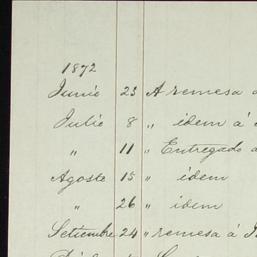 1872
Junio 23 A remesa á
Julio 8 " idem á
" 11 " Entregado á
Agosto 15 " idem
" 26 " idem
Settiembre 24 " remesa á